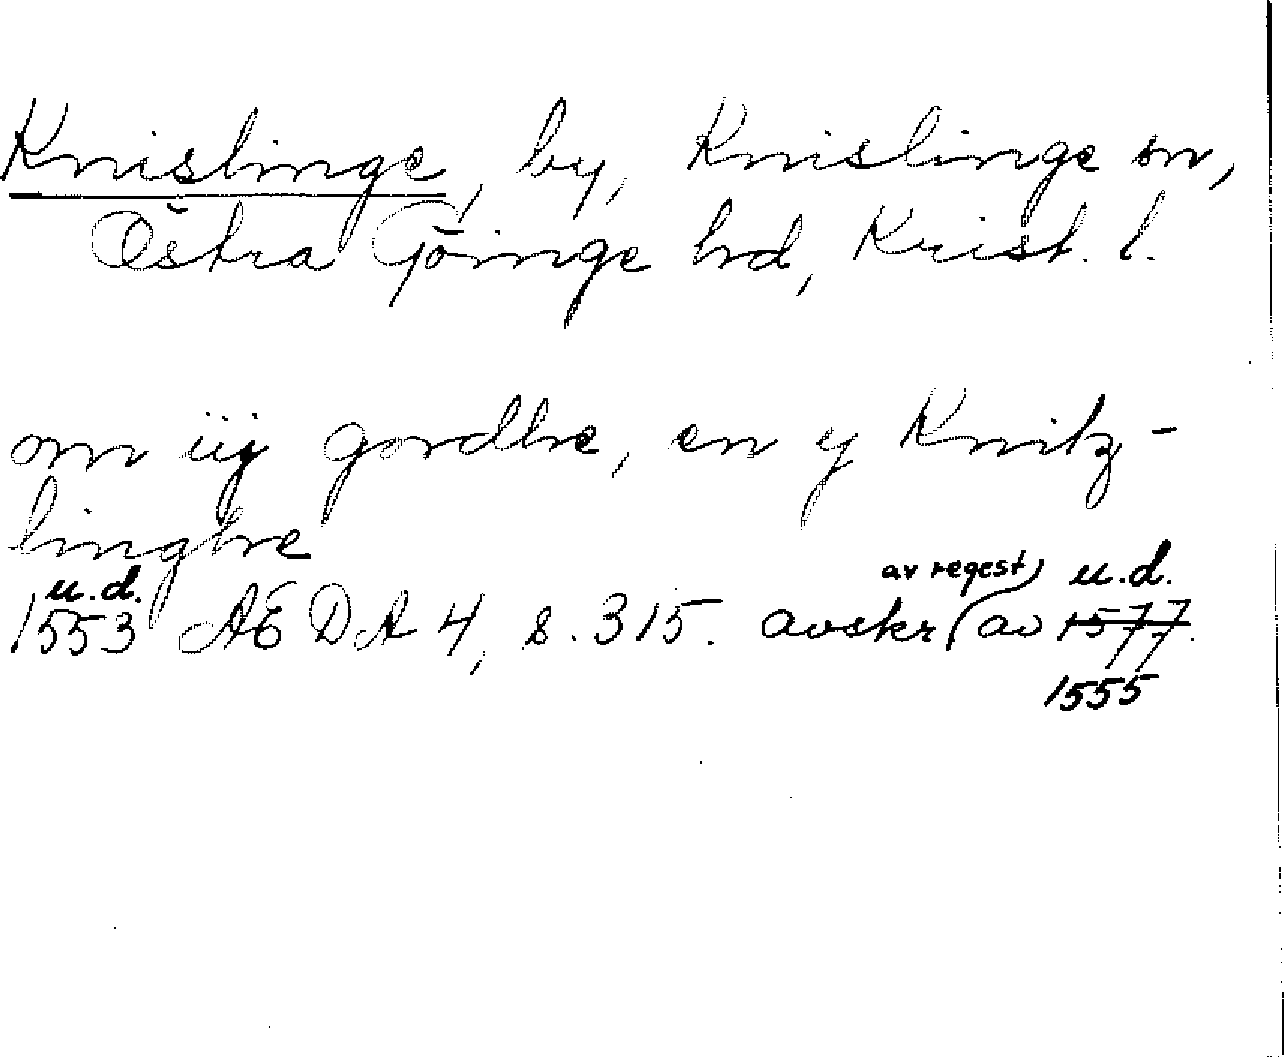 Knislinge, by, Knislinge sn,
Östra Göinge hd, Krist. l.
om iij gordhe, en y Knitz-
linghe
u.d. av regest u.d.
1553 AEDA 4, s. 315. avskr av 1577.
1555